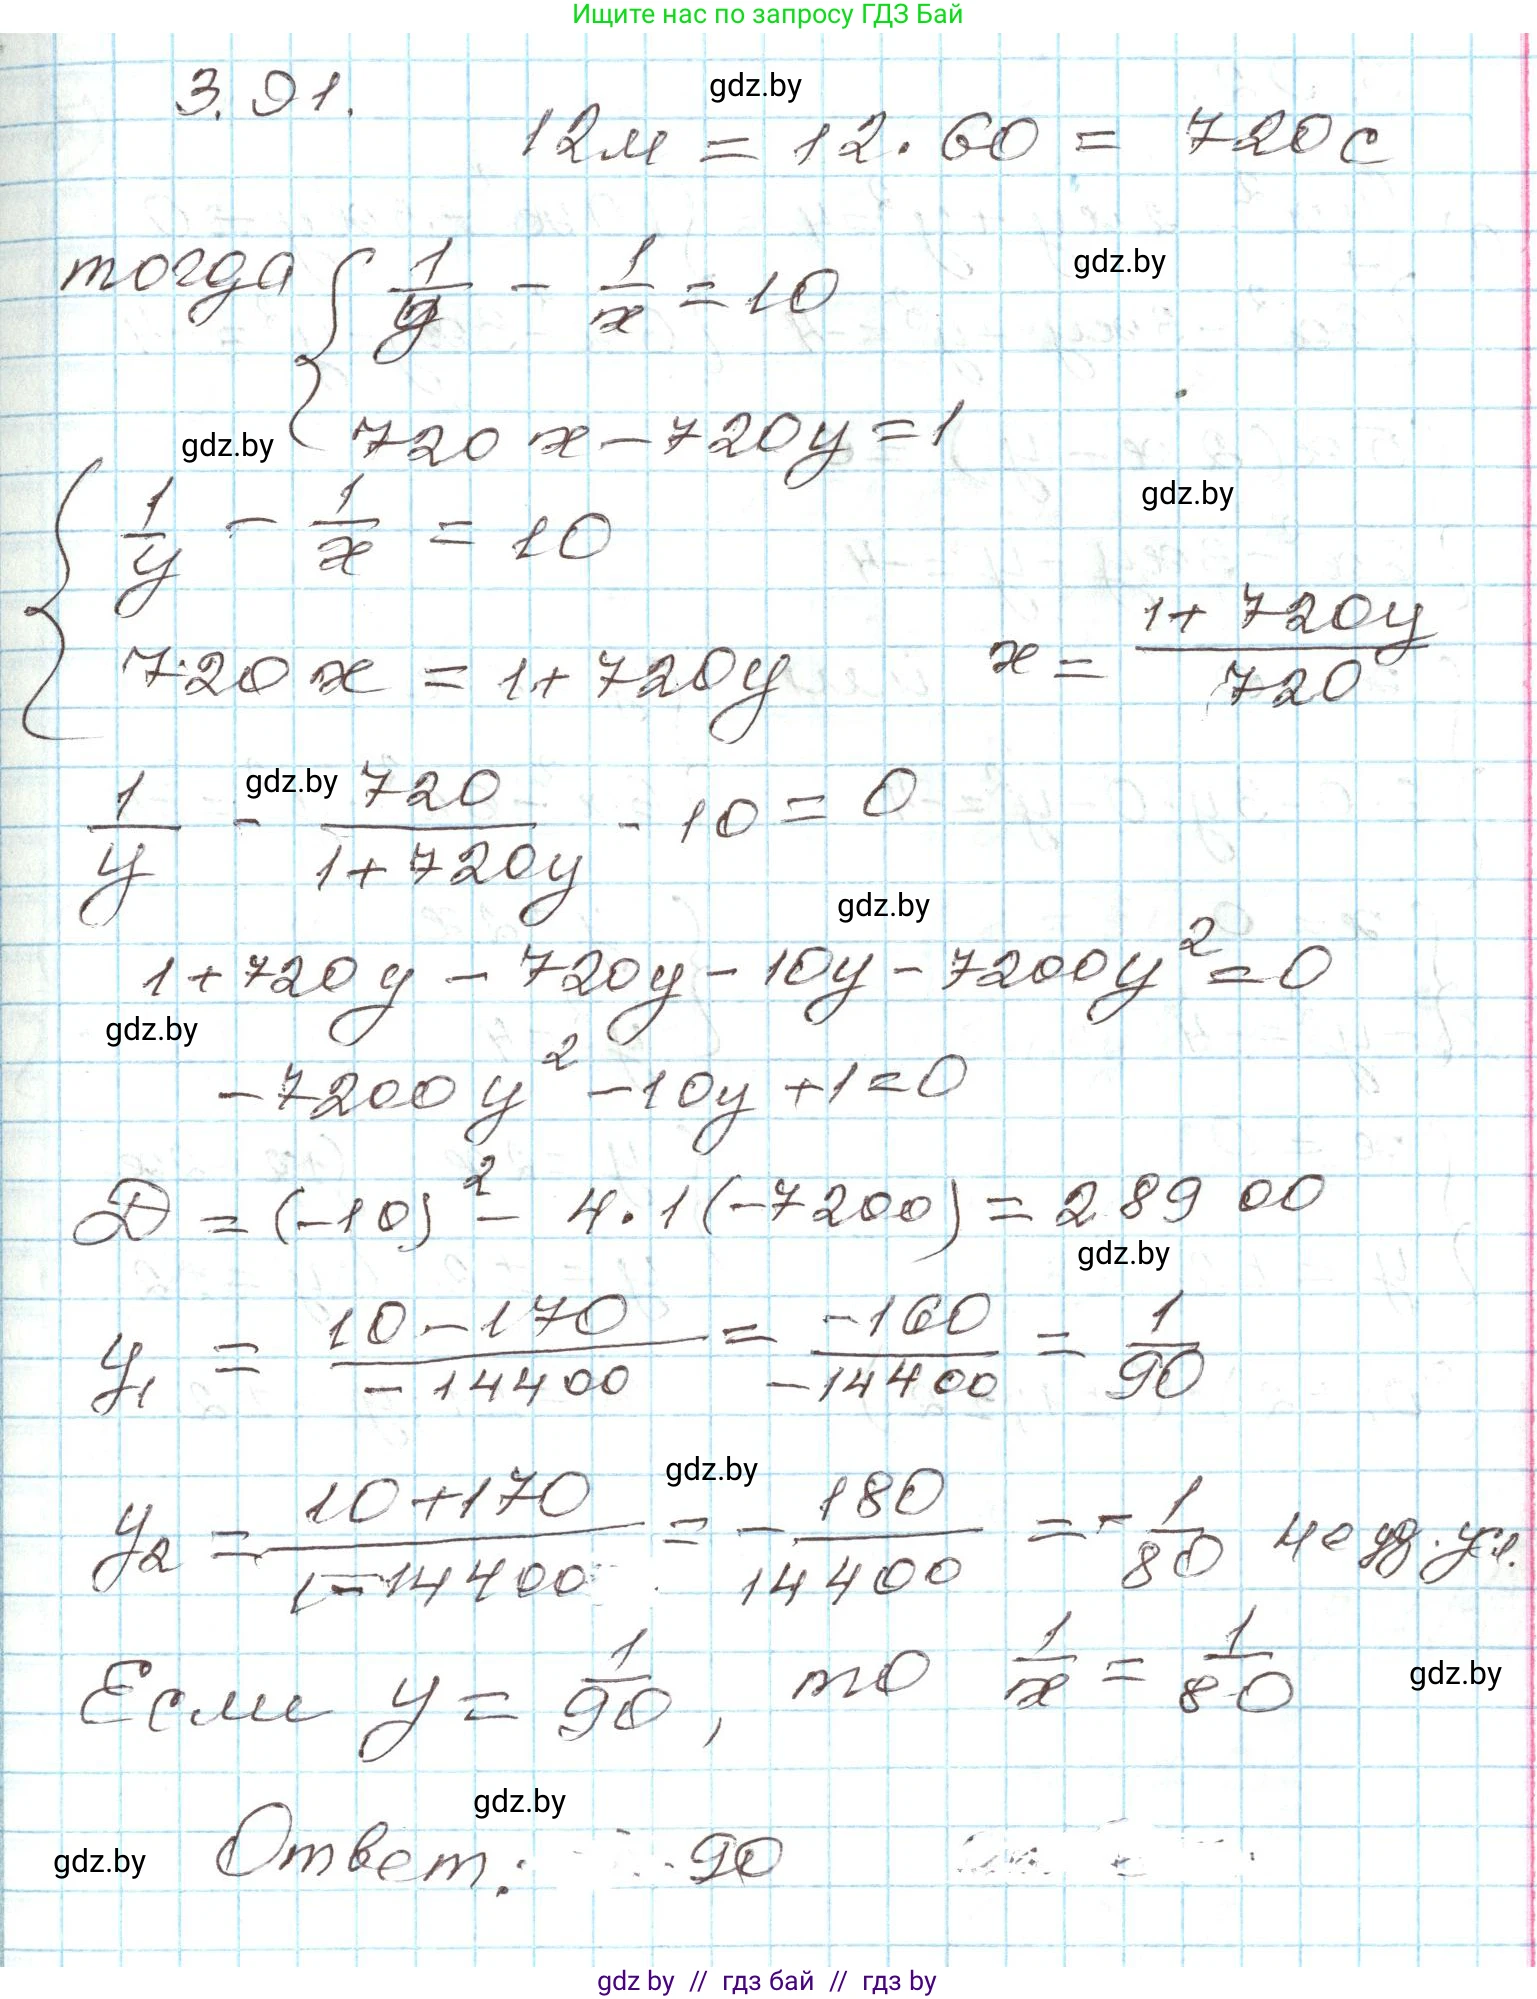 Ищите нас по запросу ГДЗ Бай
3.91.
gdz.by
12м = 12 · 60 = 720с
тогда { 1/y - 1/x = 10
gdz.by
720x - 720y = 1
gdz.by
{ 1/y - 1/x = 10
gdz.by
720x = 1 + 720y    x = (1 + 720y)/720
gdz.by
1/y - 720/(1 + 720y) - 10 = 0
gdz.by
1 + 720y - 720y - 10y - 7200y² = 0
gdz.by
-7200y² - 10y + 1 = 0
D = (-10)² - 4 · 1(-7200) = 28900
gdz.by
y₁ = (10 - 170)/(-14400) = -160/-14400 = 1/90
gdz.by
y₂ = (10 + 170)/(-14400) = -180/14400 = -1/80 не уд. ул.
Если y = 1/90, то 1/x = 1/80
gdz.by
gdz.by
gdz.by
Ответ: 90
gdz by // гдз бай // gdz by